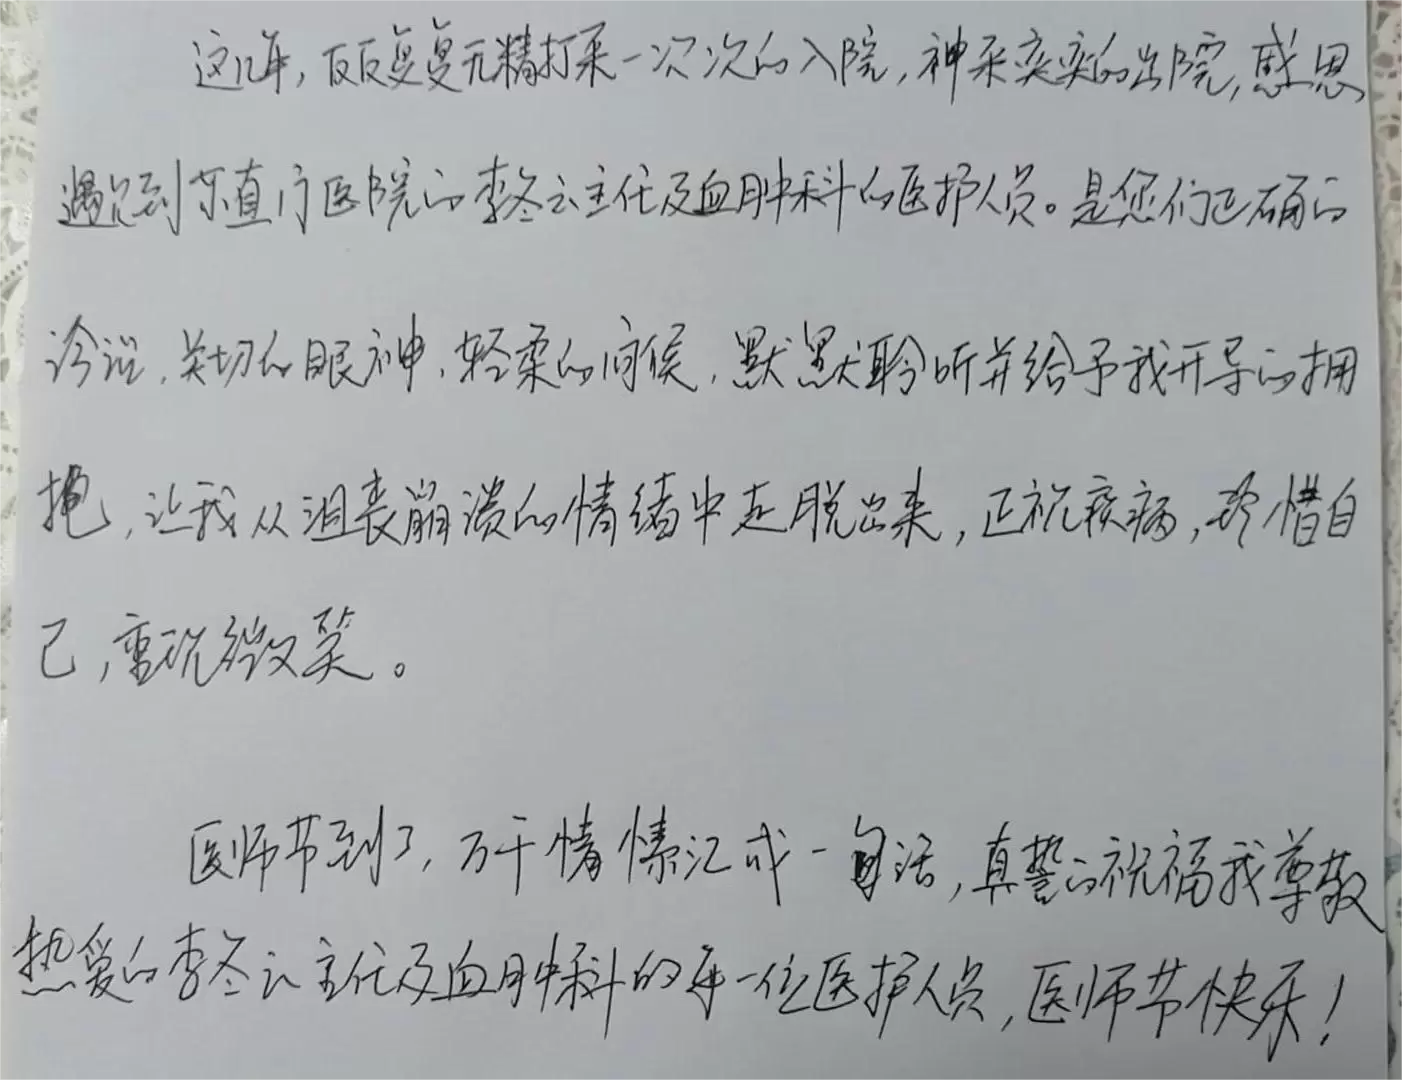 这几年，反反复复无精打采一次次的入院，神采奕奕的出院，感恩
遇见到东直门医院的李冬云主任及血肿科的医护人员。是您们正确的
诊治，关切的眼神，轻柔的问候，默默聆听并给予我开导的拥
抱，让我从沮丧崩溃的情绪中走脱出来，正视疾病，珍惜自
己，重现微笑。
医师节到了，万千情愫汇成一句话，真挚的祝福我尊敬
热爱的李冬云主任及血肿科的每一位医护人员，医师节快乐！